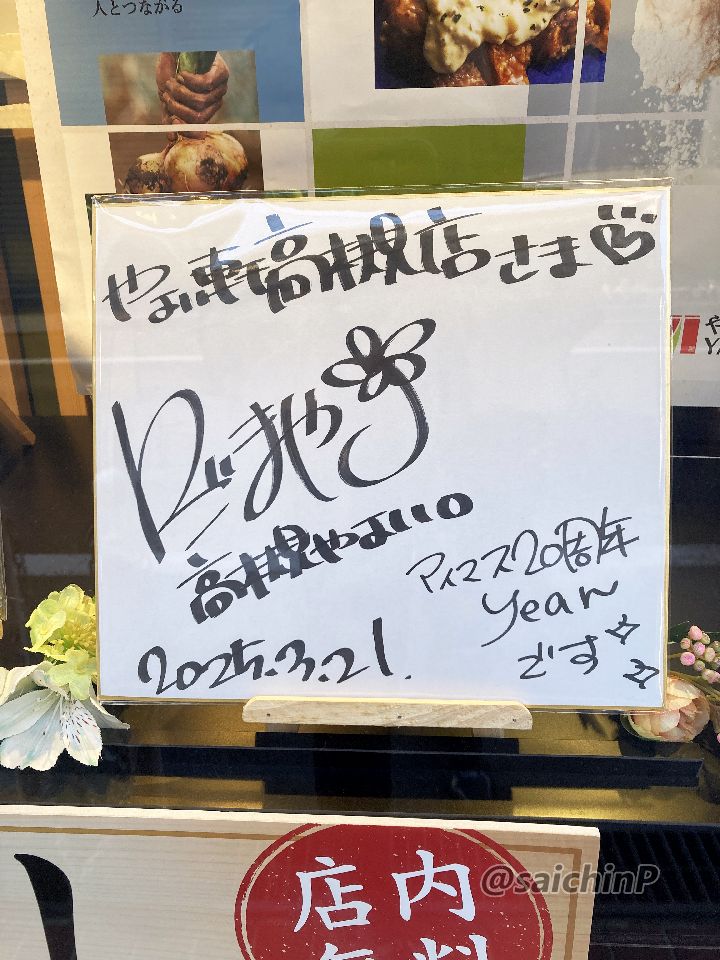 人とつながる
やよい軒高槻店さま♡
にごまや子
高槻やよい
アイマス20周年
year
です☆☆
2025.3.21.
店内
@saichinP